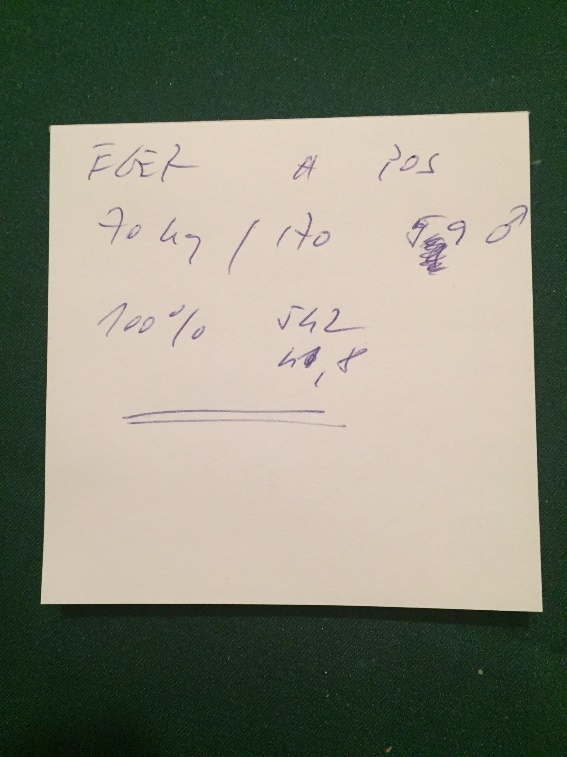 EGER A POS
70 kg / 170 59 ♂
100% 542
41,8